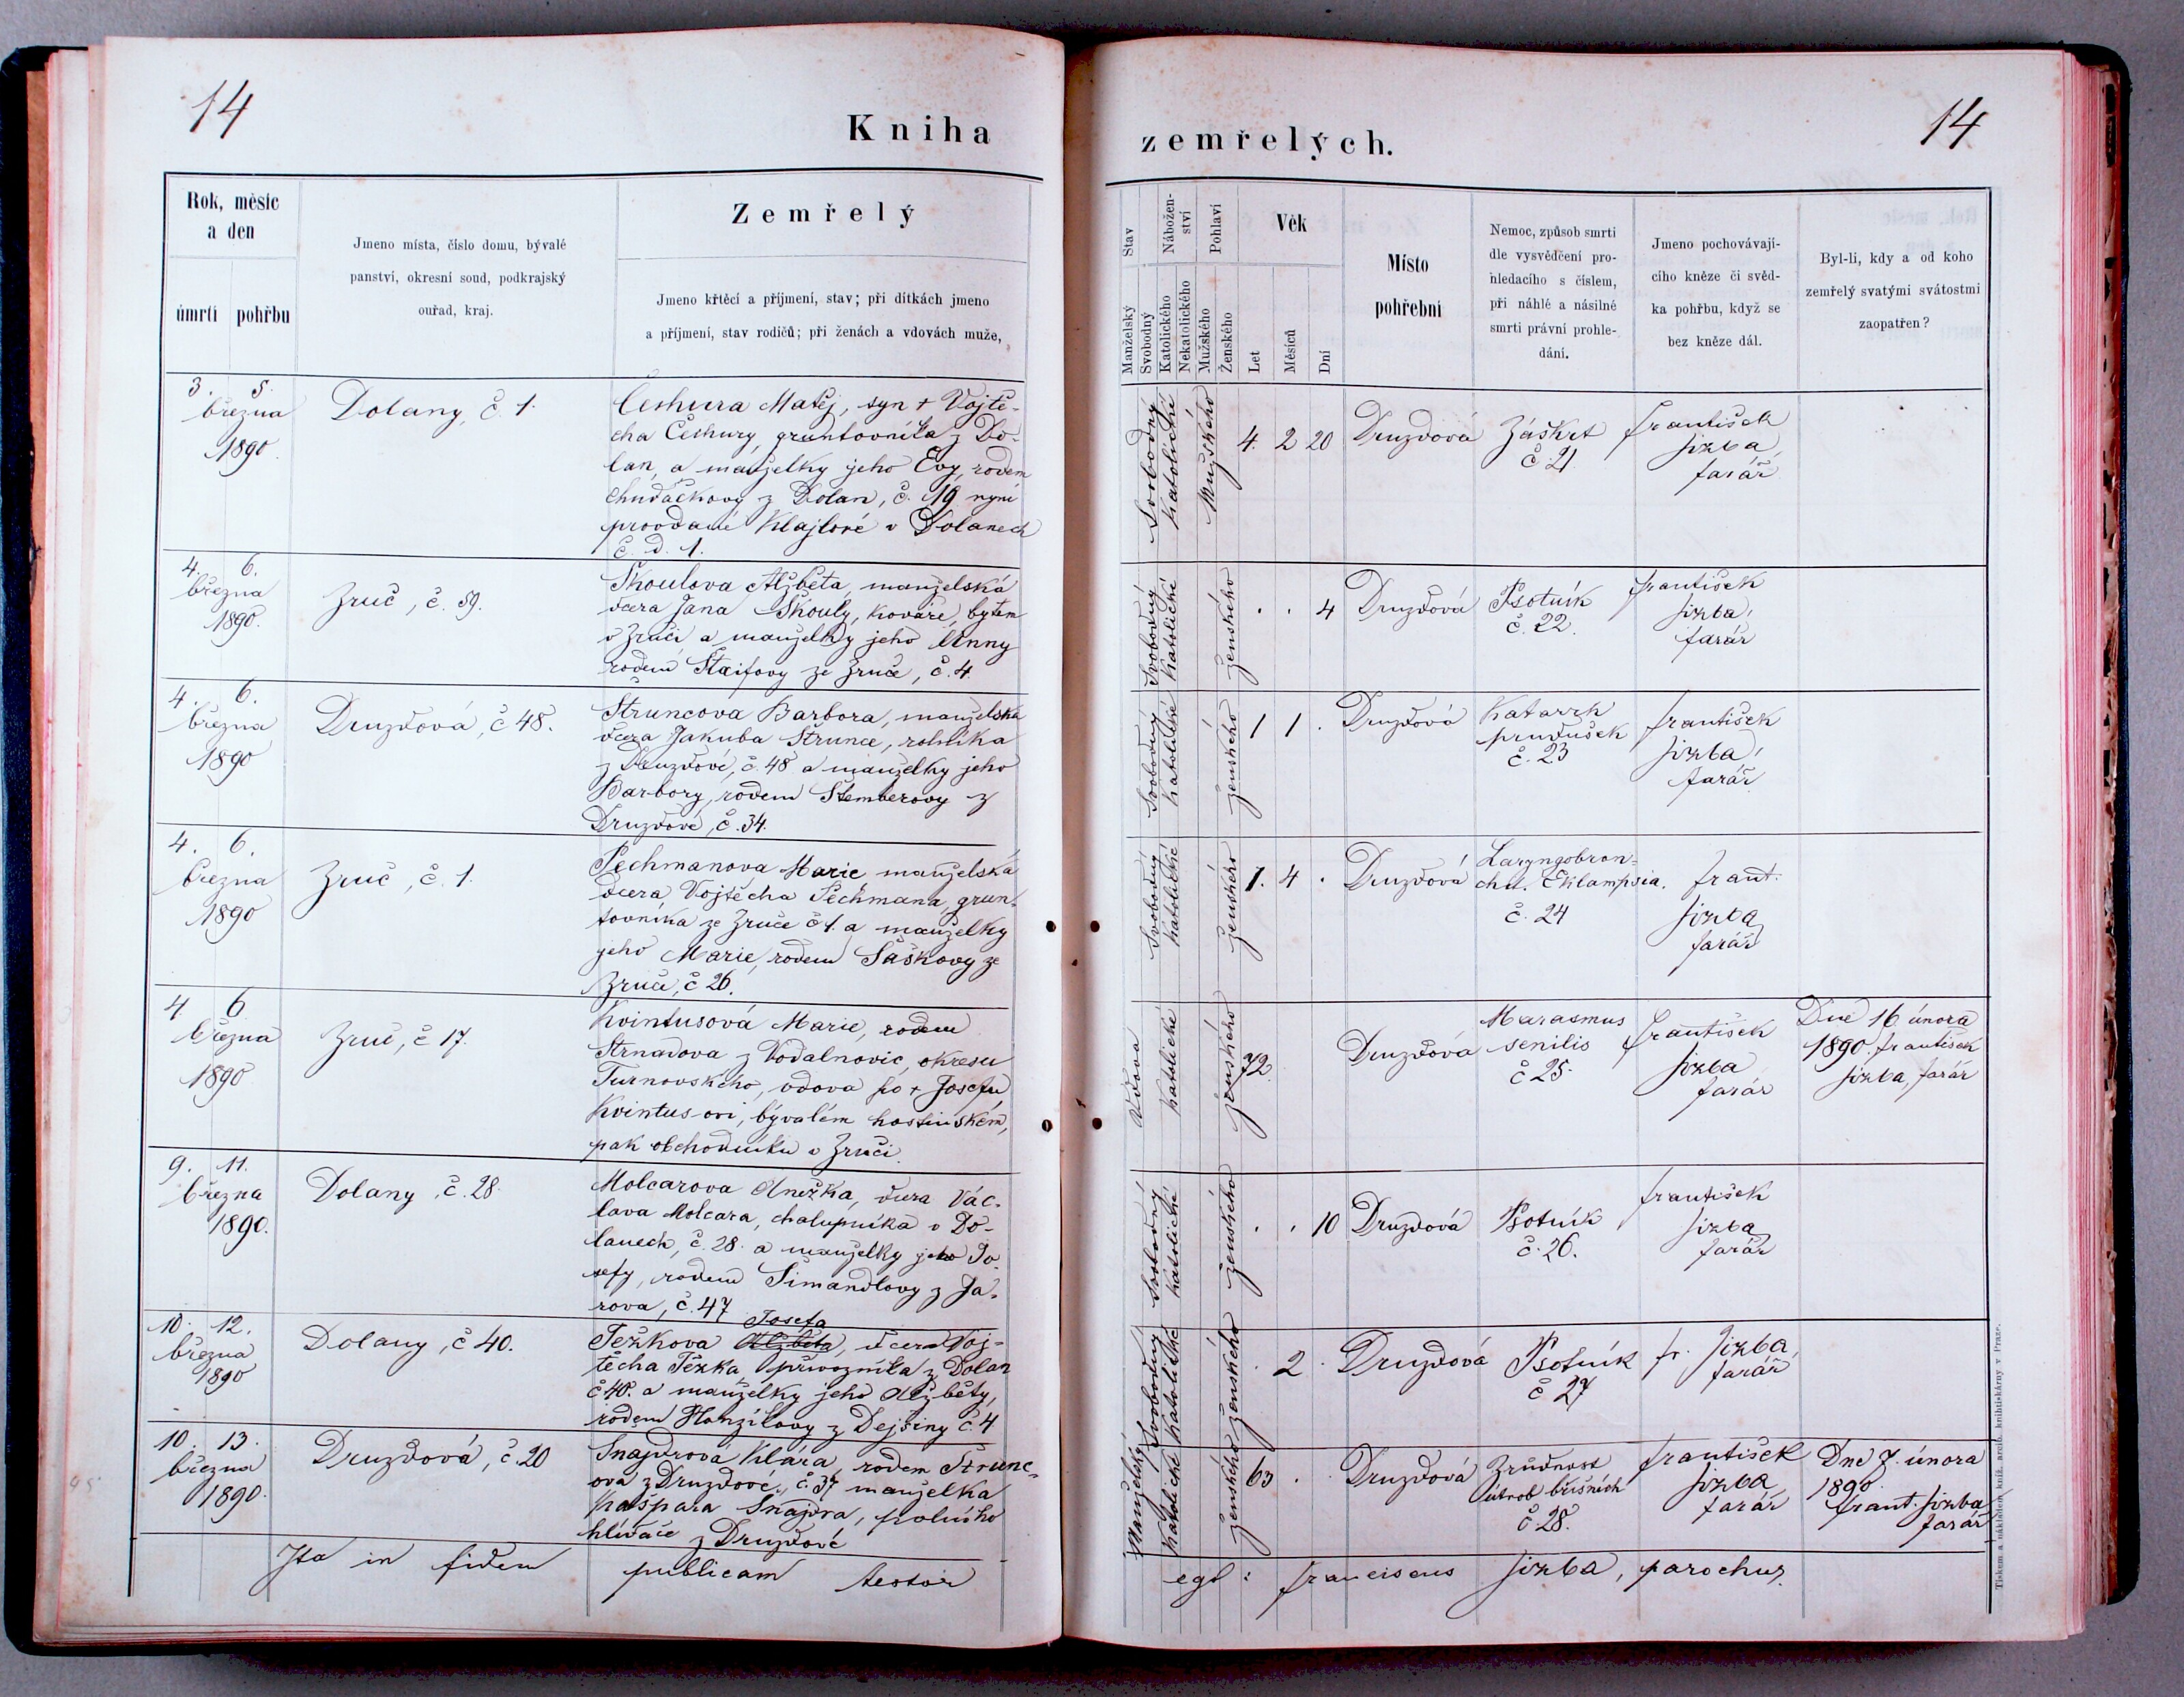 14
Kniha
Rok, měsíc
a den
úmrtí pohřbu
Jmeno místa, číslo domu, bývalé
panství, okresní soud, podkrajský
ouřad, kraj.
Zemřelý
Jmeno křtěcí a příjmení, stav; při dítkách jmeno
a příjmení, stav rodičů; při ženách a vdovách muže,
3. 5.
března
1890
Dolany, č. 1.
Čechura Matěj, syn + Vojtě-
cha Čechury, gruntovníka z Do-
lan, a manželky jeho Evy, rodem
Chudáčkovy z Dolan, č. 19 nyní
provdané Klajlové v Dolanech
č. d. 1.
4. 6.
března
1890.
Zruč, č. 59.
Škoulova Alžběta, manželská
dcera Jana Škouly, kováře, bytem
v Zruči a manželky jeho Anny
rodem Štaifovy ze Zruče, č. 4.
4. 6.
března
1890
Druzdová, č 48.
Štruncova Barbora, manželska
dcera Jakuba Štrunce, rolníka
z Druzdové, č. 48 a manželky jeho
Barbory, rodem Štemberovy z
Druzdové, č. 34.
4. 6.
března
1890
Zruč, č. 1.
Pechmanova Marie manželská
dcera Vojtěcha Pechmana, grun-
tovníka ze Zruče č 1. a manželky
jeho Marie, rodem Šaškovy ze
Zruče, č 26.
4 6
března
1890
Zruč, č 17.
Kvintusová Marie, rodem
Strnadova z Vodalnovic, okresu
Turnovského, vdova po + Josefu
Kvintus-ovi, bývalém hostinském,
pak obchodníku v Zruči.
9. 11.
března
1890.
Dolany, č. 28.
Molcarova Anežka, dcera Vác-
lava Molcara, chalupníka v Do-
lanech, č. 28. a manželky jeho Jo-
sefy, rodem Šimandlovy z Ja-
rova, č. 47
10. 12.
března
1890
Dolany, č 40.
Josefa
Težkova Alžběta, dcera Voj-
těcha Těžka přívozníka z Dolan
č 40. a manželky jeho Alžběty,
rodem Honzíkovy z Dejšiny č. 4
10. 13.
března
1890.
Druzdová, č. 20
Šnajdrová Klára, rodem Štrunc-
ova z Druzdové, č. 37 manželka
Kašpara Šnajdra, polního
hlídače z Druzdové
Ita in fidem publicam testor
14
zemřelých.
Stav
Manželský
Svobodný
Nábožen-
ství
Katolického
Nekatolického
Pohlaví
Mužského
Ženského
Věk
Let
Měsíců
Dní
Místo
pohřební
Nemoc, způsob smrti
dle vysvědčení pro-
hledacího s číslem,
při náhlé a násilné
smrti právní prohle-
dání.
Jmeno pochovávají-
cího kněze či svěd-
ka pohřbu, když se
bez kněze dál.
Byl-li, kdy a od koho
zemřelý svatými svátostmi
zaopatřen?
Svobodný
Katolické
Mužského
4. 2 20
Druzdová
Záškrt
č. 21
František
Jizba,
farář
Svobodný
Katolické
ženského
. . 4
Druzdová
Psotník
č. 22.
František
Jizba,
farář
Svobodný
Katolické
ženského
1 1 .
Druzdová
Katarrh
prudušek
č. 23
František
Jizba,
farář
Svobodný
Katolické
ženského
1. 4 .
Druzdová
Laryngobron-
chit. Eklampsia.
č. 24
Frant.
Jizba
farář
Vdova
Katolické
ženského
72.
Druzdová
Marasmus
senilis
č 25.
František
Jizba
farář
Dne 16 února
1890. František
Jizba, farář
Svobodný
Katolické
ženského
. . 10
Druzdová
Psotník
č. 26.
František
Jizba
farář
Svobodný
Katolické
ženského
. 2 .
Druzdová
Psotník
č 27
Fr. Jizba,
farář
Manželský
Katolické
ženského
63 .
Druzdová
Zrůdnost
útrob břišních
č 28.
František
Jizba,
farář
Dne 7. února
1890
Frant. Jizba
farář
ego: Franciscus Jizba, parochus.